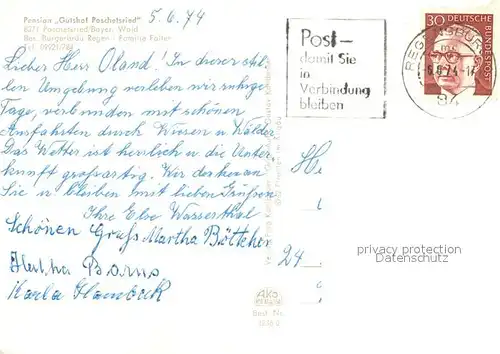 Pension „Gutshof Poschetsried"
8371 Poschetsried/Bayer. Wald
Bes. Bürgerbräu Regen - Familie Falter
Tel. 09921/788
5.6.74
Lieber Herr Oland! In dieser stil-
len Umgebung verleben wir ruhige
Tage, verbunden mit schönen
Ausfahrten durch Wiesen u. Wälder.
Das Wetter ist herrlich u. die Unter-
kunft großartig. Wir denken an
Sie u. bleiben mit lieben Grüßen
Ihre Else Wasserthal
Schönen Gruß Martha Böttcher
Hertha Borns
Karla
Post–
damit Sie
in
Verbindung
bleiben
REGENSBURG
-6.6.74-17
30 DEUTSCHE
BUNDESPOST
He
24
AKO
Best Nr.
privacy protection
Datenschutz